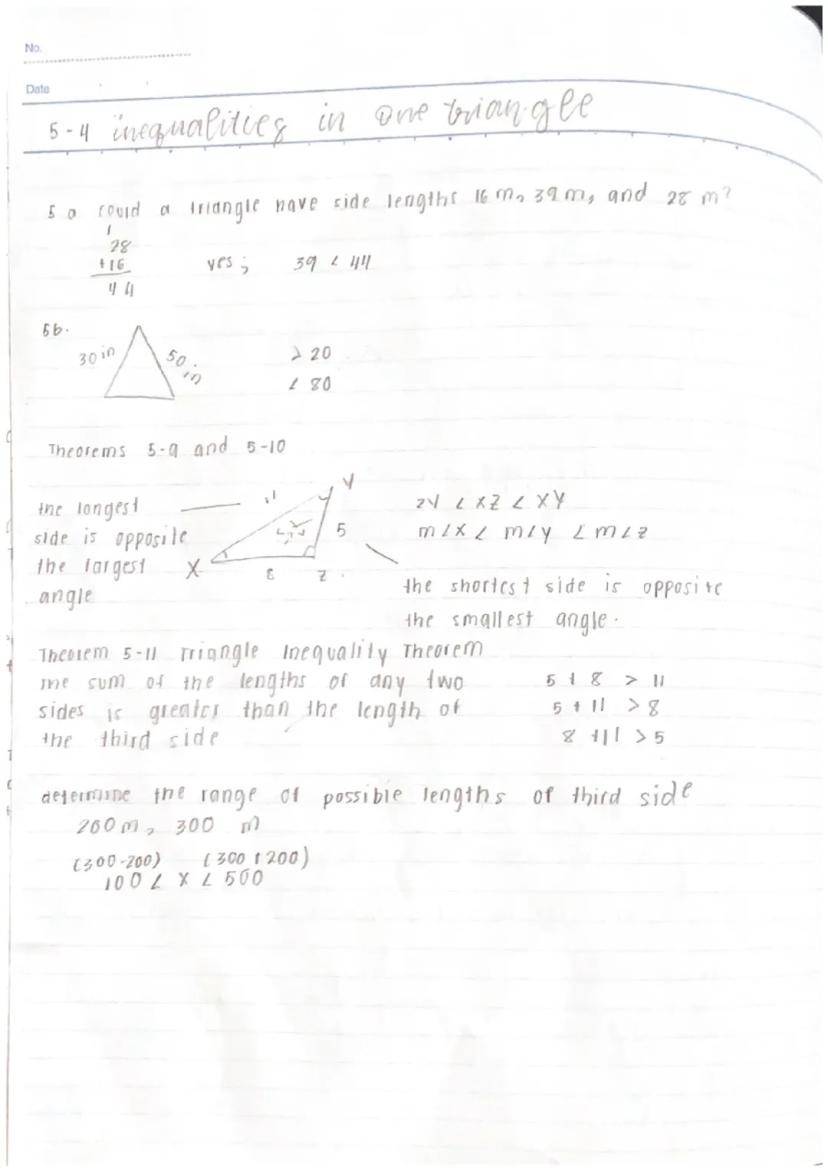 No.
Date
5-4 inequalities in one triangle
5a could a triangle have side lengths 16 m, 39 m, and 28 m?
1
28
+16
44
yes; 39 < 44
5b.
30 in
50 in
> 20
< 80
Theorems 5-9 and 5-10
the longest
side is opposite
the largest
angle
11
Y
5
X
8
Z
ZY < XZ < XY
m∠X < m∠Y < m∠Z
the shortest side is opposite
the smallest angle.
Theorem 5-11 Triangle Inequality Theorem
The sum of the lengths of any two
sides is greater than the length of
the third side
5 + 8 > 11
5 + 11 > 8
8 + 11 > 5
determine the range of possible lengths of third side
200 m, 300 m
(300-200) (300+200)
100 < x < 500